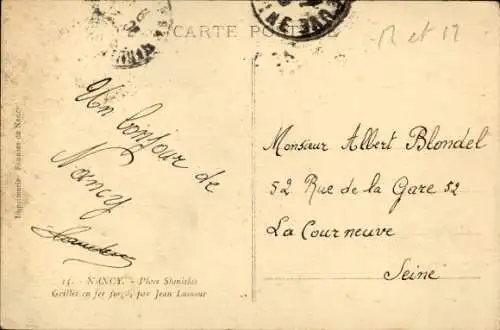 CARTE POSTALE
Un bonjour de
Nancy
Monsieur Albert Blondel
52 Rue de la Gare 52
La Courneuve
Seine
14. - NANCY. - Place Stanislas
Grilles en fer forgé, par Jean Lamour
Imprimeries Réunies de Nancy